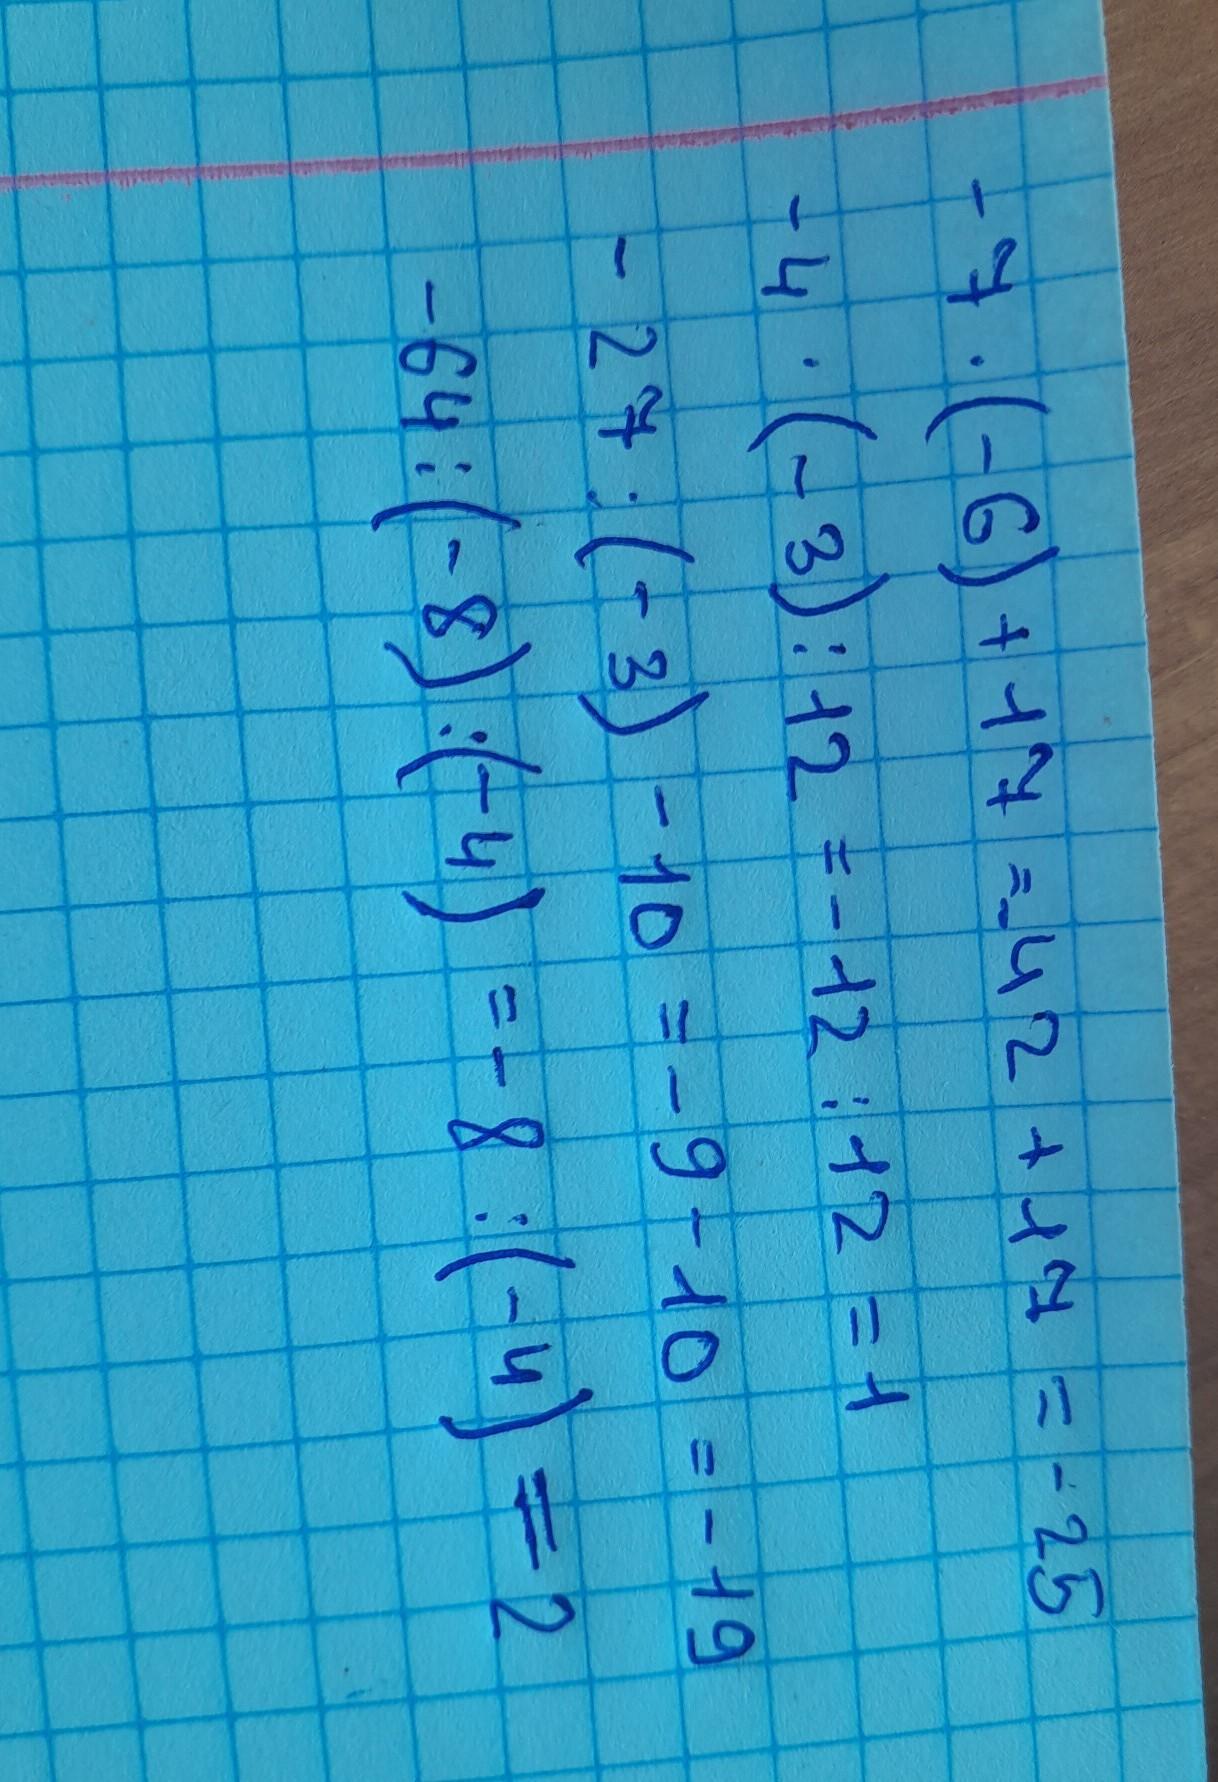 -7 · (-6) + 17 = -42 + 17 = -25
-4 · (-3) : 12 = -12 : 12 = 1
-27 : (-3) - 10 = -9 - 10 = -19
-64 : (-8) : (-4) = -8 : (-4) = 2